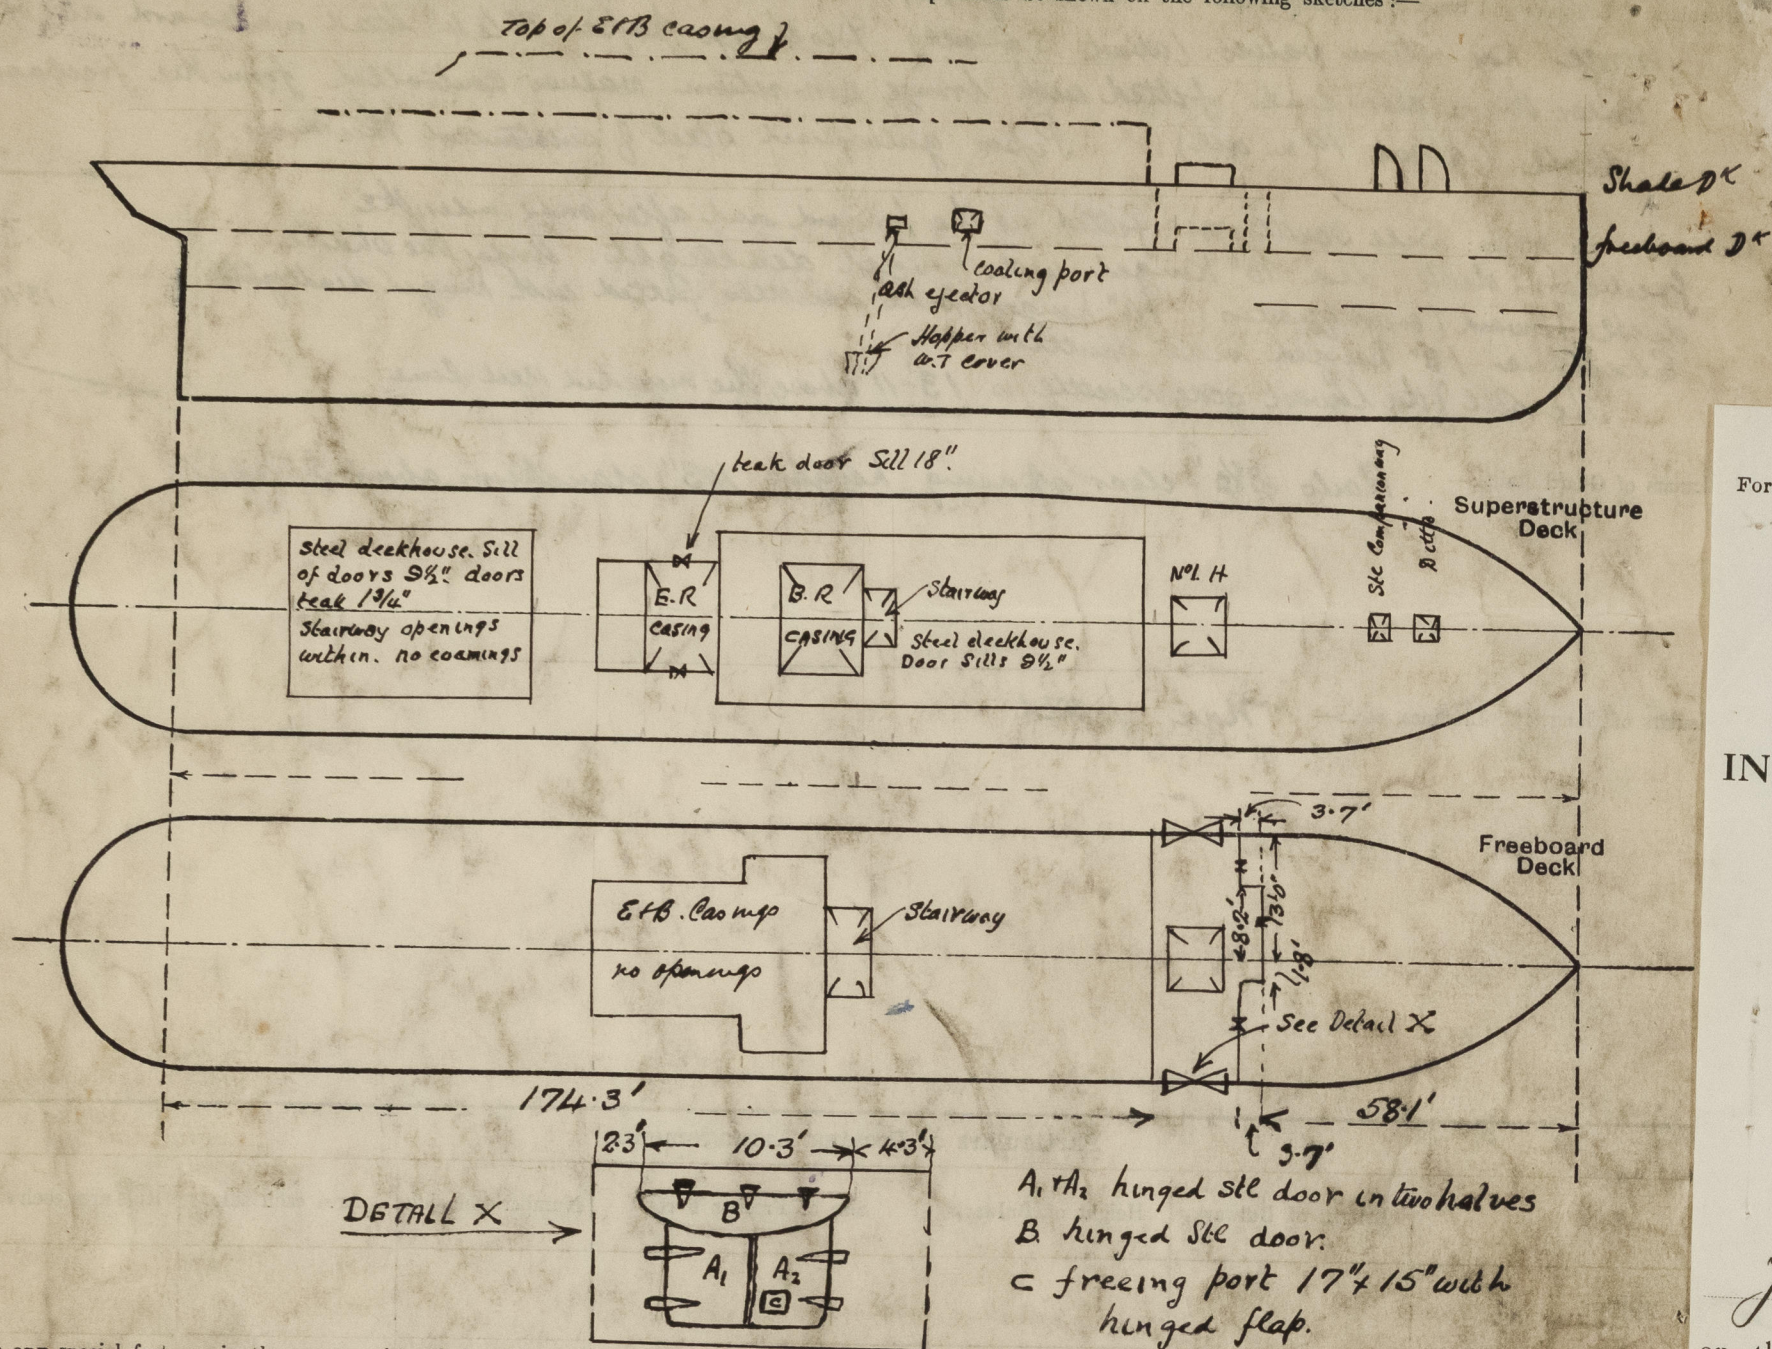 shown on the following sketches:—
Top of E+B casing
Shade Dk
freeboard Dk
coaling port
ash ejector
Hopper with
W.T cover
teak door Sill 18".
Superstructure
Deck
Ste Companionway
Ditto.
Steel deckhouse. Sill
of doors 9½". doors
teak 1¾"
Stairway openings
within. no coamings
E.R
casing
B.R
CASING
Stairway
Steel deckhouse.
Door Sills 9½"
No1. H
For
IN
3.7'
Freeboard
Deck
E+B. Casings
no openings
Stairway
8.2'
13.5'
1.8'
See Detail X
174.3'
58.1'
3.7'
2.3' 10.3' 4.3'
DETAIL X
B
A1 A2
C
A1 + A2 hinged stl door in two halves
B. hinged Stl door.
C freeing port 17" x 15" with
hinged flap.